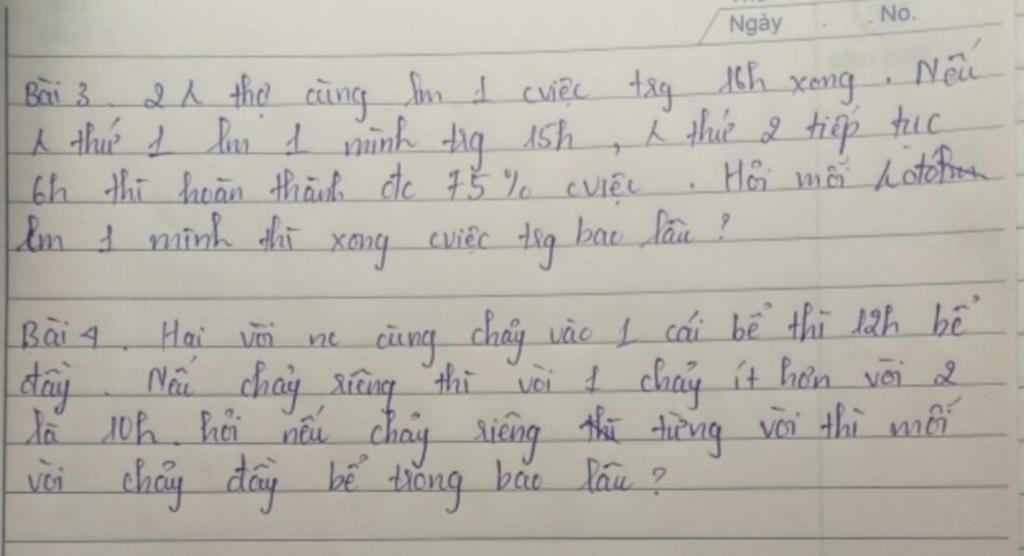 Ngày . . No.
Bài 3. 2 λ thợ cùng lm 1 cviệc trg 16h xong. Nếu
λ thứ 1 lm 1 mình trg 15h, λ thứ 2 tiếp tục
6h thì hoàn thành đc 75% cviệc. Hỏi mỗi
lm 1 mình thì xong cviệc trg bao lâu?
Bài 4. Hai vòi nc cùng chảy vào 1 cái bể thì 12h bể
đầy. Nếu chảy riêng thì vòi 1 chảy ít hơn vòi 2
là 10h. hỏi nếu chảy riêng thì từng vòi thì mỗi
vòi chảy đầy bể trong bao lâu?